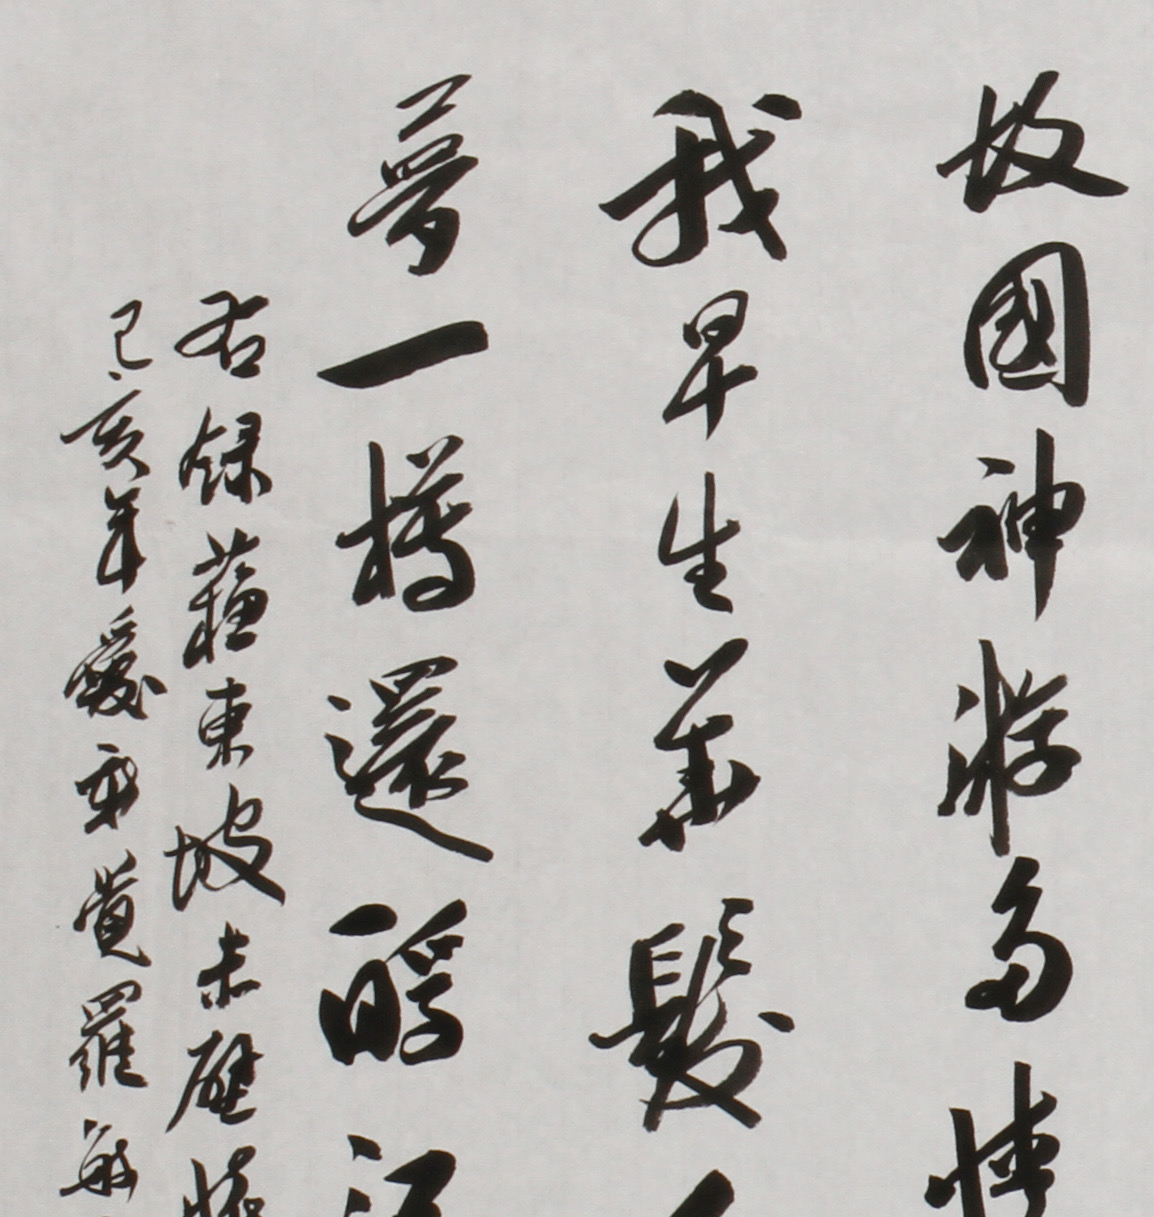 故國神游多情
我早生華髮人
夢一樽還酹江
右録蘇東坡赤壁懷
己亥年愛新覺羅毓